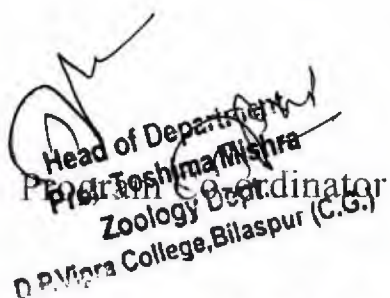 Head of Department
Prof. Toshima Mishra
Program Co-ordinator
Zoology Dept.
D.P.Vipra College,Bilaspur (C.G.)